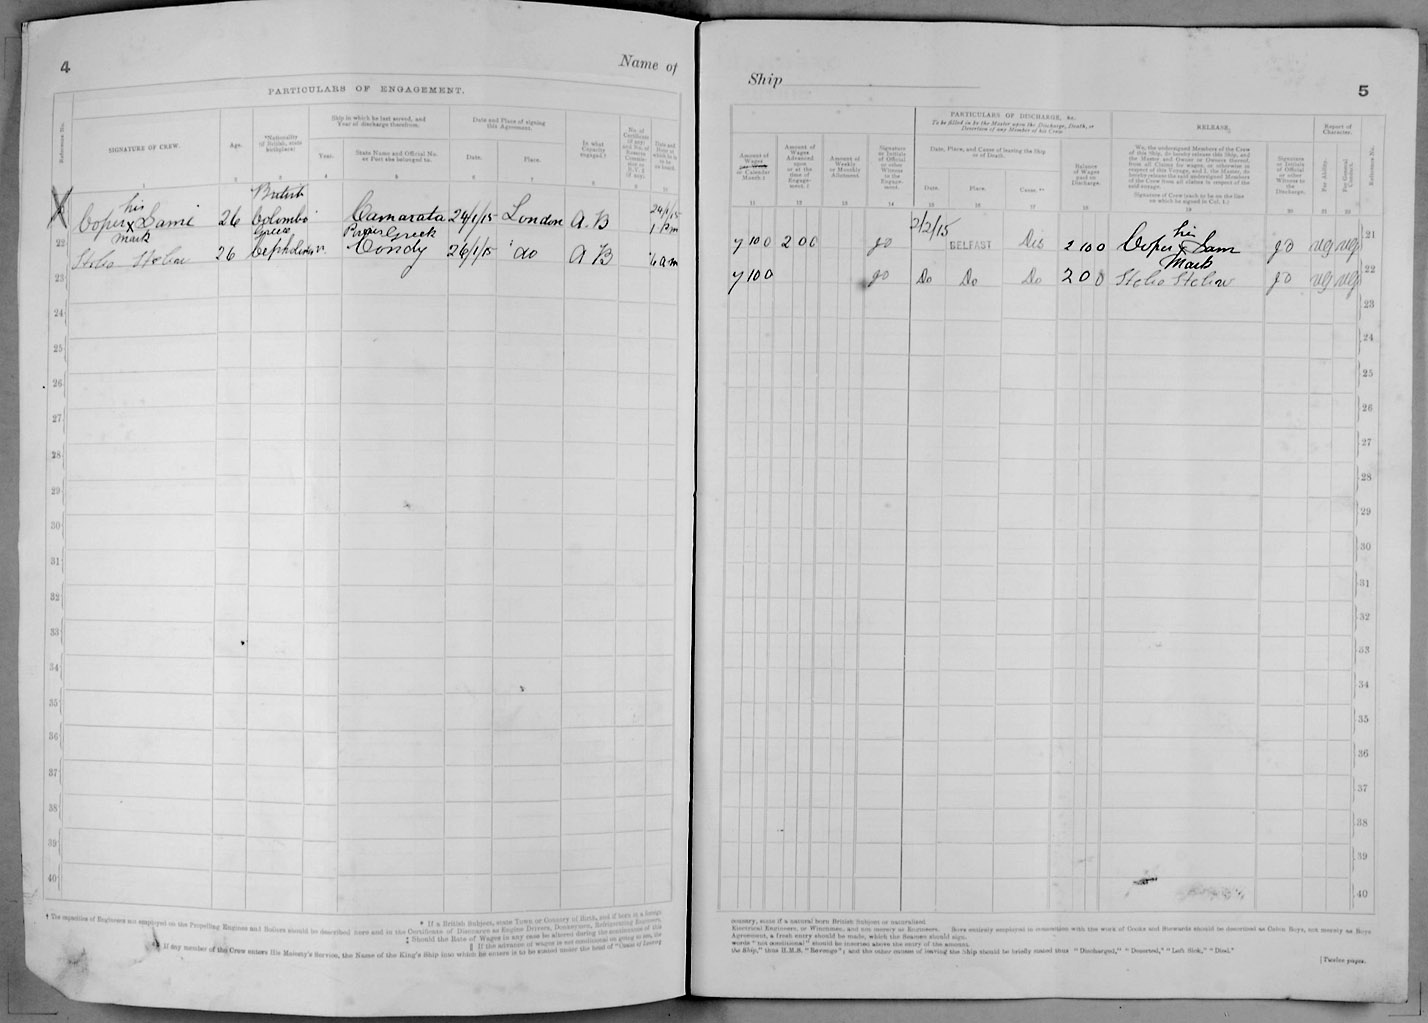 4
Name of
PARTICULARS OF ENGAGEMENT.
Reference No.
SIGNATURE OF CREW.
Age.
*Nationality (If British, state birthplace)
Ship in which he last served, and Year of discharge therefrom.
Year.
State Name and Official No. or Port she belonged to.
Date and Place of signing this Agreement.
Date.
Place.
In what Capacity engaged.†
1 2 3 4 5 6 7 8 9 10
X his British
Coper X Sami 26 Colombo Camarata 24/1/15 London A.B 24/1/15
mark Greece Greek 1 Pm
26 Condy 26/1/15 do A B 6 am
22
23
24
25
26
27
28
29
30
31
32
33
34
35
36
37
38
39
40
† The capacities of Engineers not employed on the Propelling Engines and Boilers should be described here and in the Certificate of Discharge as Engine Drivers, Donkeymen, Refrigerating Engineers,
* If a British Subject, state Town or Country of Birth, and if born in a foreign
‡ Should the Rate of Wages in any case be altered during the continuance of this
‖ If the advance of wages is not conditional on going to sea, the
§ If any member of the Crew enters His Majesty's Service, the Name of the King's Ship into which he enters is to be stated under the head of "Cause of Leaving
Ship
5
PARTICULARS OF DISCHARGE, &c.
To be filled in by the Master upon the Discharge, Death, or Desertion of any Member of his Crew.
RELEASE.
Report of Character.
Amount of Wages per Week or Calendar Month ‡
Amount of Wages Advanced upon or at the time of Engagement. ‖
Amount of Weekly or Monthly Allotment.
Signature or Initials of Official or other Witness to the Engagement.
Date, Place, and Cause of leaving the Ship or of Death.
Date.
Place.
Cause.
Balance of Wages paid on Discharge.
We, the undersigned Members of the Crew of this Ship, do hereby release this Ship, and the Master and Owner or Owners thereof, from all Claims for wages, or otherwise in respect of this Voyage, and I, the Master, do hereby release the said undersigned Members of the Crew from all claims in respect of the said voyage.
Signature of Crew (each to be on the line on which he signed in Col. 1.)
Signature or Initials of Official or other Witness to the Discharge.
For Ability.
For General Conduct.
Reference No.
11 12 13 14 15 16 17 18 19 20 21 22
2/2/15 his 21
7 10 0 2 0 0 BELFAST Dis 2 10 0 Coper X Sam VG VG
mark 22
7 10 0 Do Do Do 2 0 0 VG VG
23
24
25
26
27
28
29
30
31
32
33
34
35
36
37
38
39
40
country, state if a natural born British Subject or naturalised.
Electrical Engineers, or Winchmen, and not merely as Engineers. Boys entirely employed in connection with the work of Cooks and Stewards should be described as Cabin Boys, not merely as Boys
Agreement, a fresh entry should be made, which the Seaman should sign.
words "not conditional" should be inserted above the entry of the amount.
the Ship," thus H.M.S. "Revenge"; and the other causes of leaving the Ship should be briefly stated thus "Discharged," "Deserted," "Left Sick," "Died."
[Twelve pages.